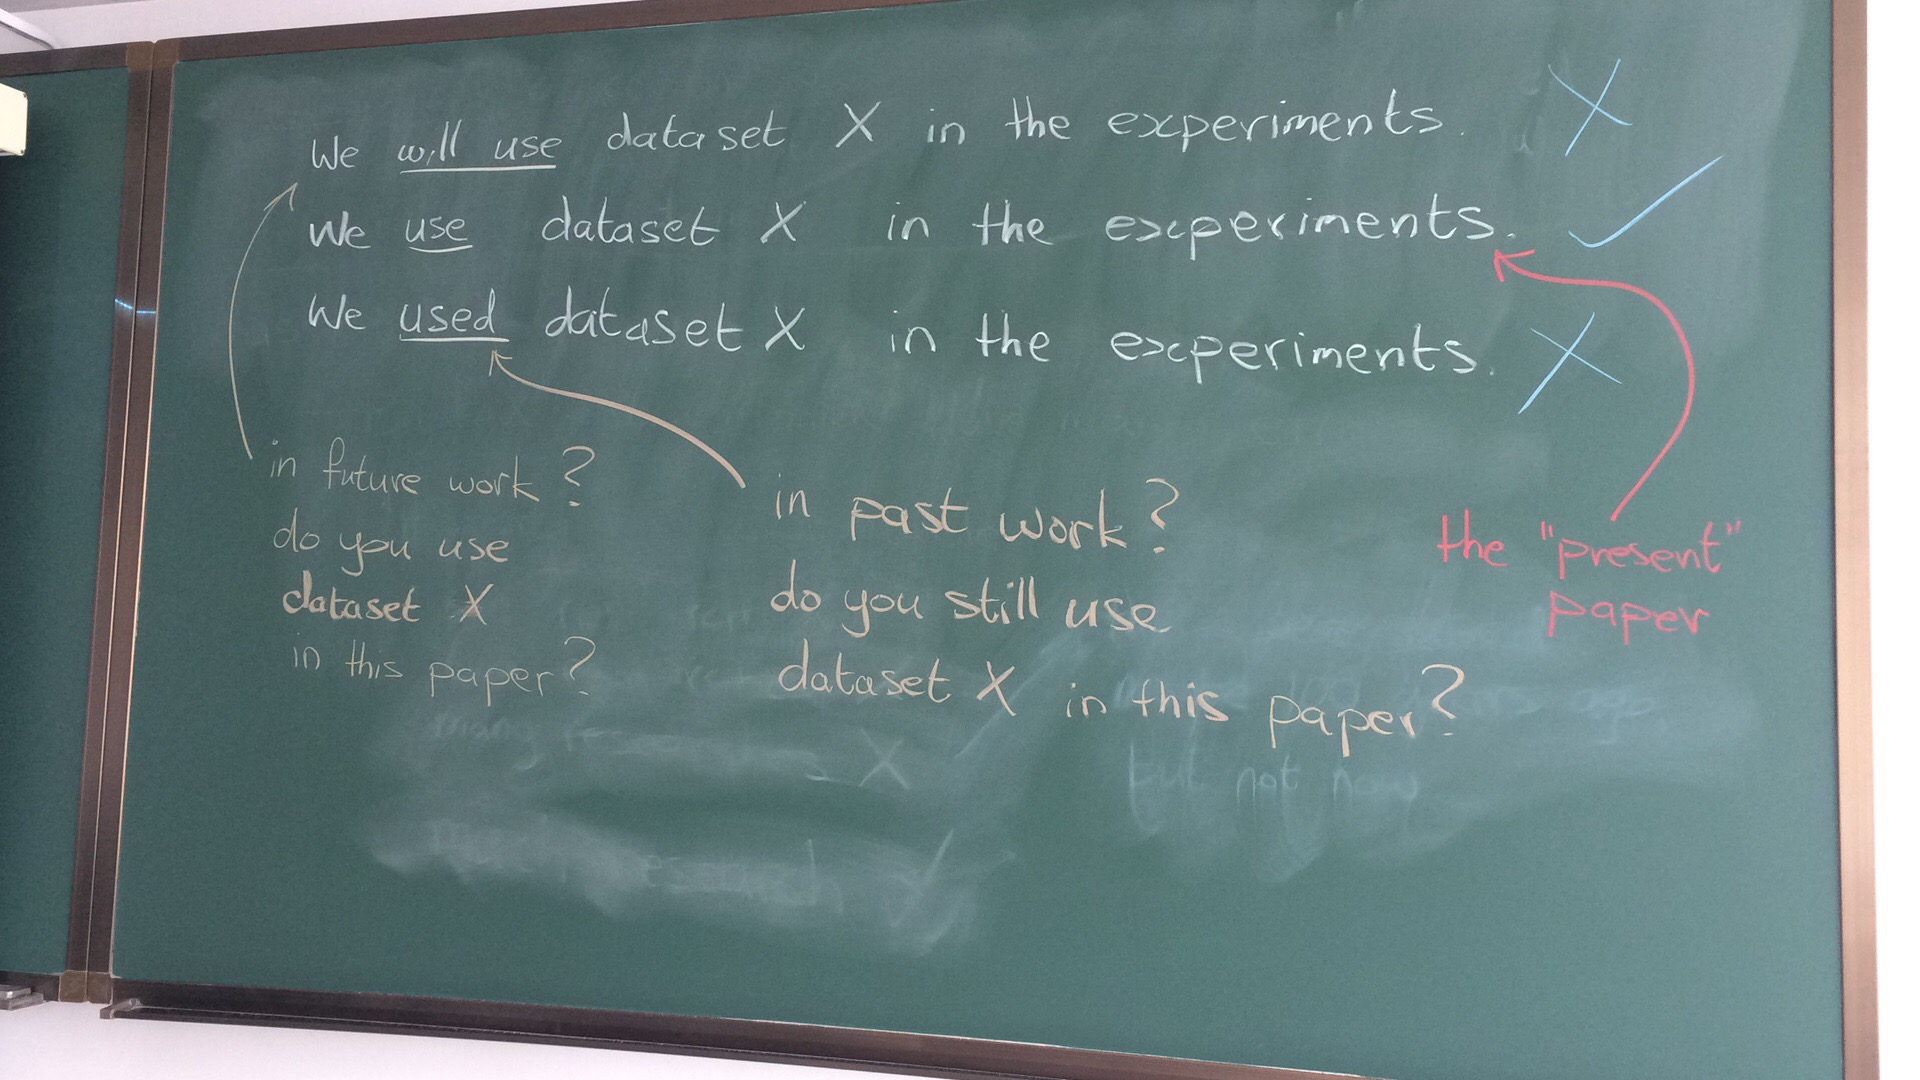 We will use dataset X in the experiments. X
We use dataset X in the experiments. ✓
We used dataset X in the experiments. X
in future work?
do you use
dataset X
in this paper?
in past work?
do you still use
dataset X in this paper?
the "present"
paper
many X
but not now
research ✓